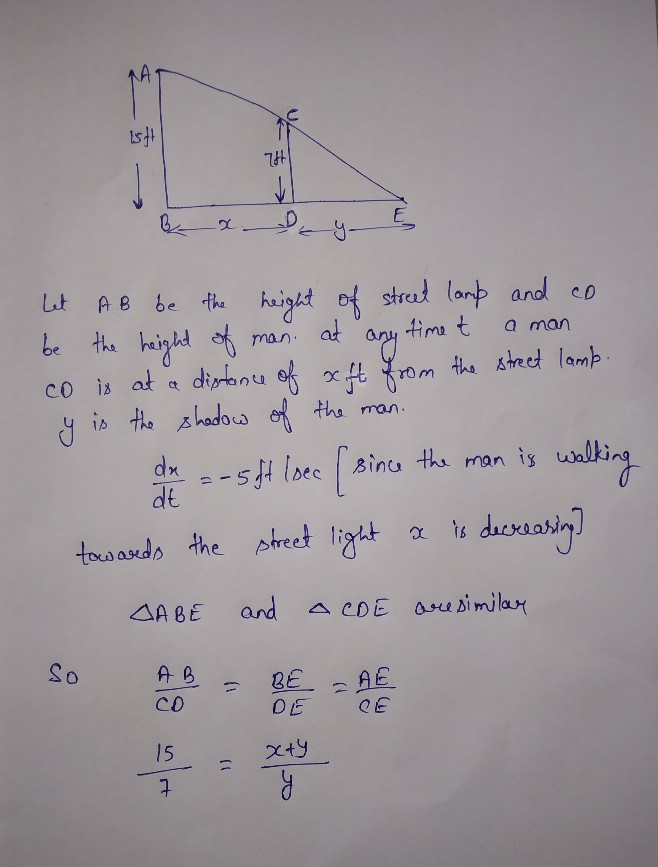 A
15ft
C
7ft
B x D y E
Let AB be the height of street lamp and CD
be the height of man. at any time t a man
CD is at a distance of x ft from the street lamp.
y is the shadow of the man.
dx/dt = -5 ft/sec [since the man is walking
towards the street light x is decreasing]
△ABE and △CDE are similar
So AB/CD = BE/DE = AE/CE
15/7 = x+y/y